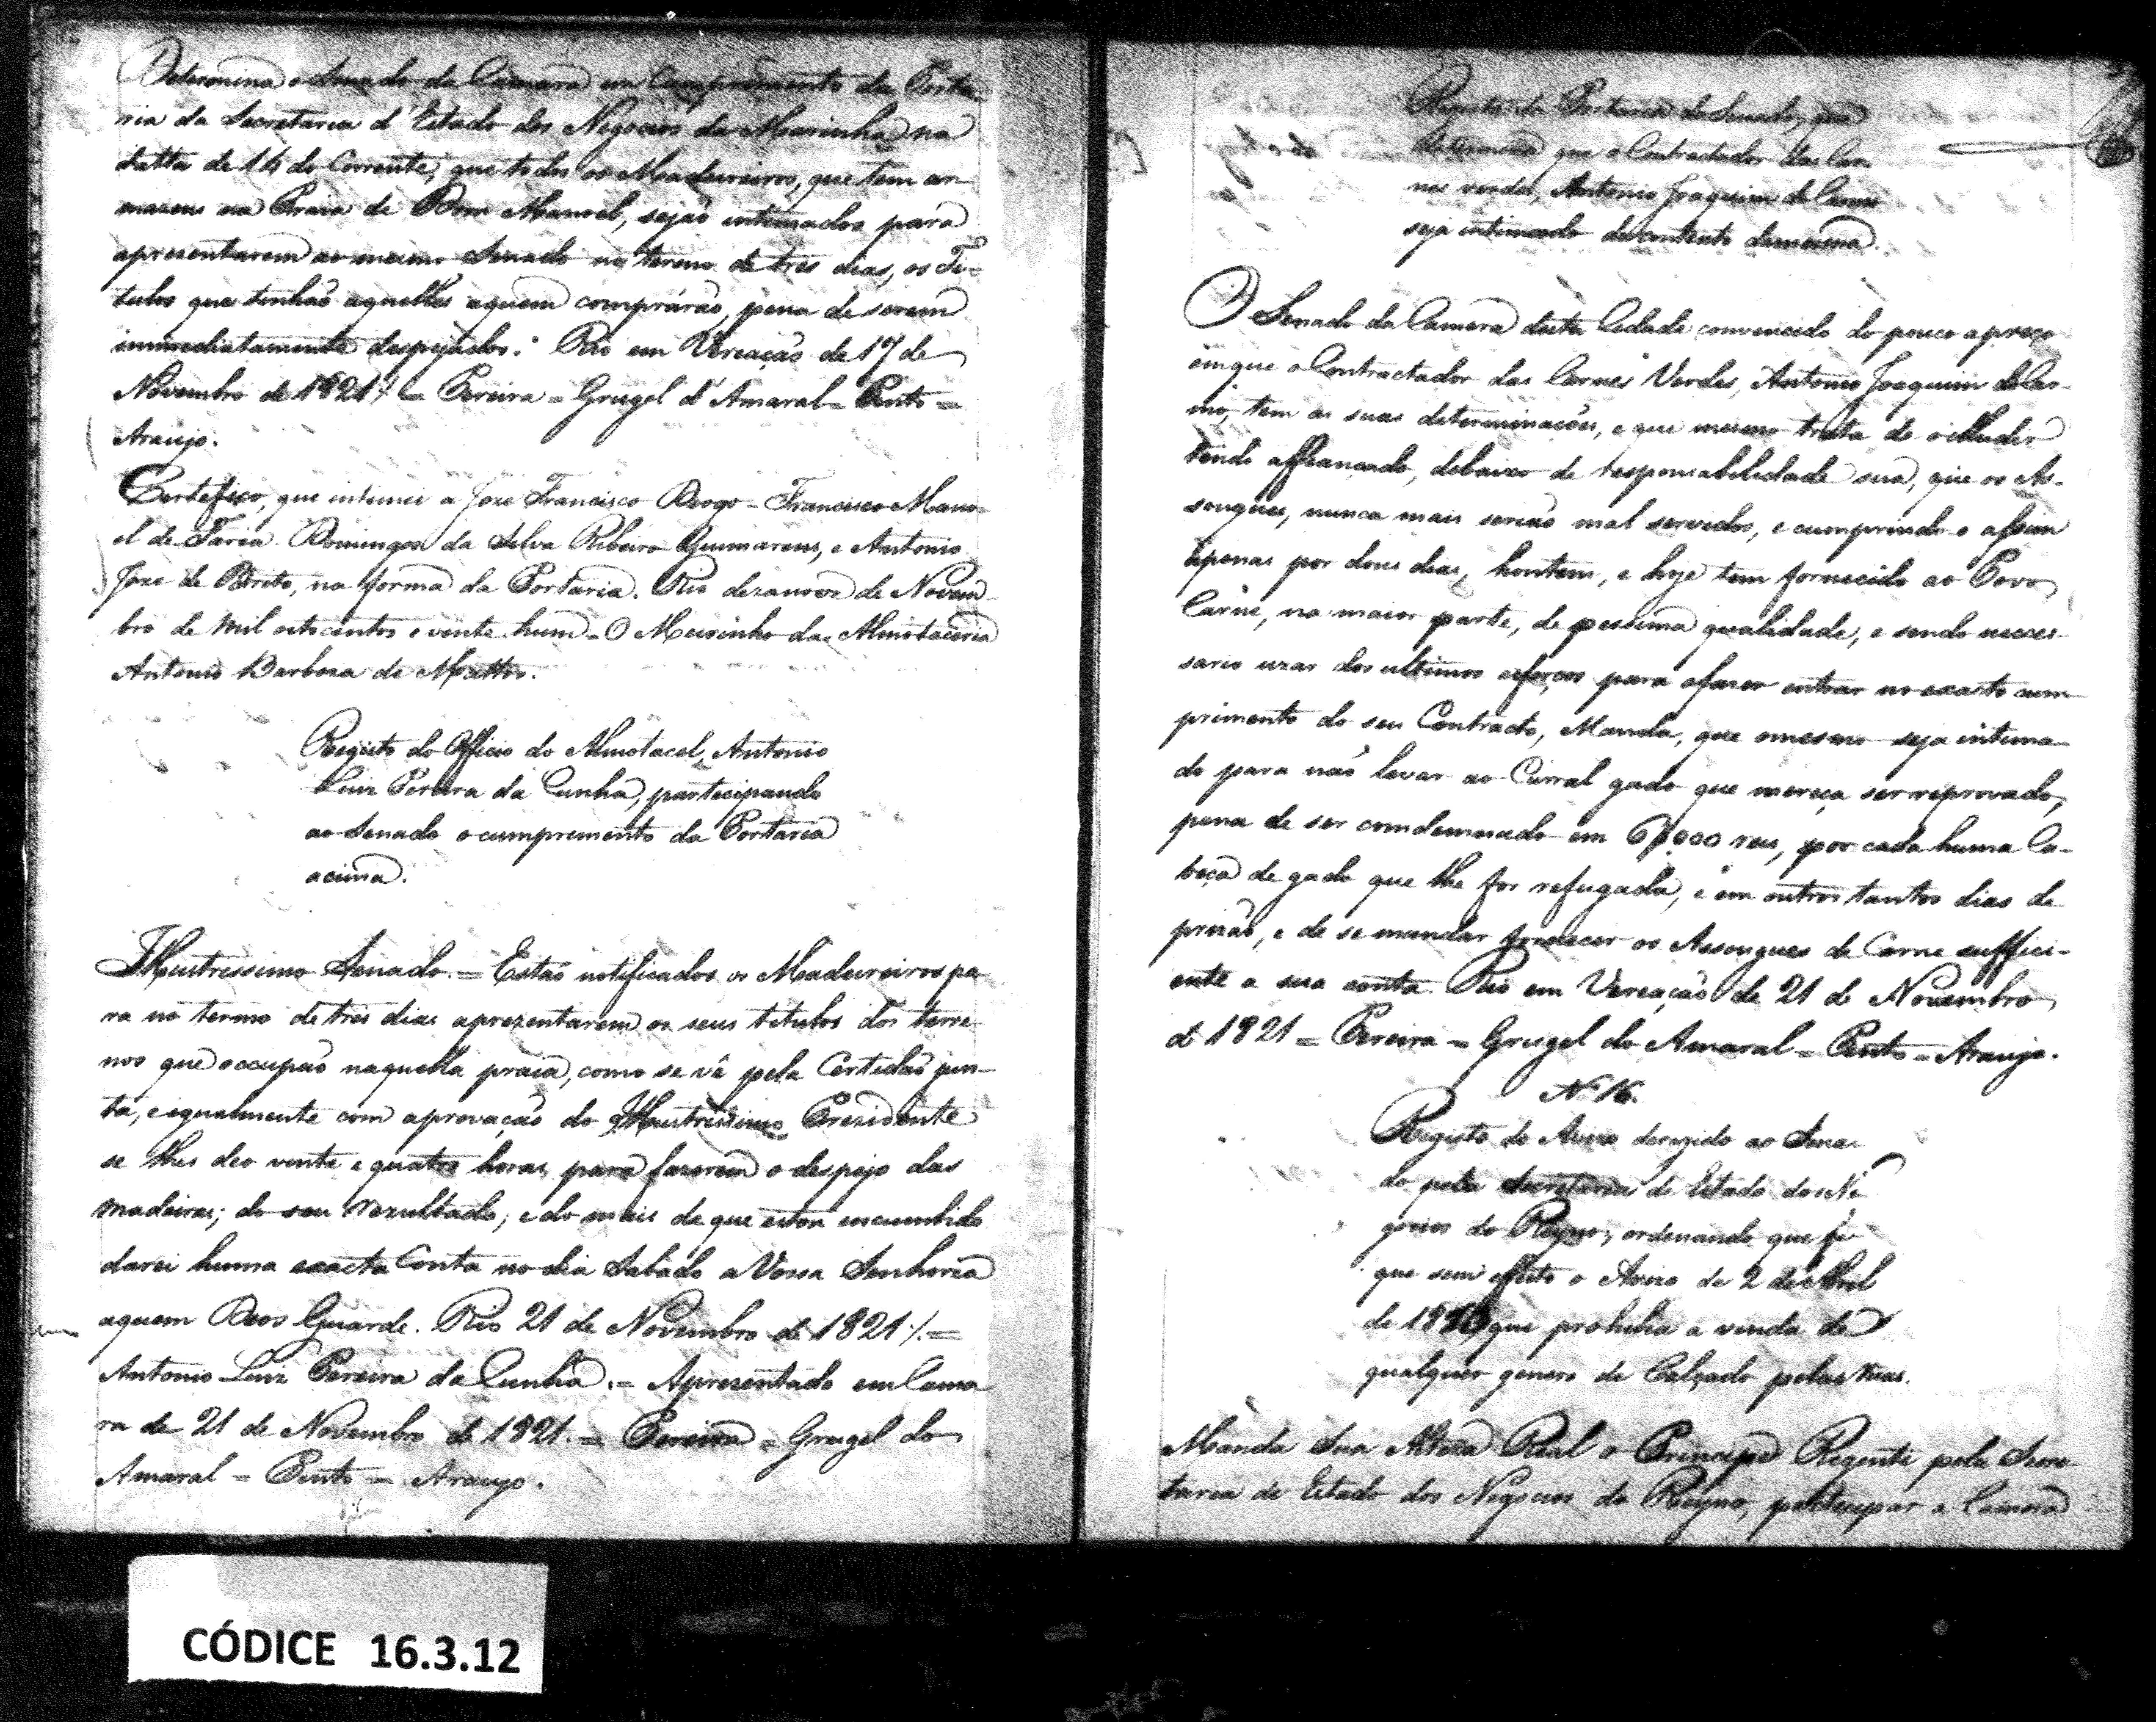 Determina o Senado da Camara em Cumprimento da Porta-
ria da Secretaria d'Estado dos Negocios da Marinha na
datta de 14 do Corrente, que todos os Madeireiros, que tem ar-
mazens na Praia de Dom Manoel, sejaõ intimados para
aprezentarem ao mesmo Senado no termo de tres dias, os Ti=
tulos que tenhaõ aquelles aquem comprárão, pena de serem
immediatamente despejados. Rio em Vereaçaõ de 17 de
Novembro de 1821 = Pereira = Grugel d'Amaral = Pinto =
Araujo.
Certefico, que intimei a Joze Francisco Diogo - Francisco Mano-
el de Faria Domingos da Silva Ribeiro Guimarens, e Antonio
Joze de Brito, na forma da Portaria. Rio dezanove de Novem-
bro de mil oitocentos e vinte hum - O Meirinho da Almotaceria
Antonio Barboza de Mattos.
Registo do Officio do Almotacel, Antonio
Luiz Pereira da Cunha, partecipando
ao Senado o cumprimento da Portaria
acima.
Illustrissimo Senado. = Estaõ notificados os Madeireiros pa
ra no termo de tres dias aprezentarem os seus titulos dos terre-
nos que occupaõ naquella praia, como se vê pela Certidaõ jun-
ta, e igualmente com aprovaçaõ do Illustrissimo Prezidente
se lhes deo vinte e quatro horas para fazerem o despejo das
madeiras; do seu rezultado, e do mais de que estou encumbido
darei huma exacta Conta no dia Sabado a Vossa Senhoria
aquem Deos Guarde. Rio 21 de Novembro de 1821 ./. =
Antonio Luiz Pereira da Cunha. = Aprezentado em Cama
ra de 21 de Novembro de 1821. = Pereira = Grugel do
Amaral = Pinto = Araujo.
Registo da Portaria do Senado, que
determina que o Contractador das Car-
nes verdes, Antonio Joaquim do Carmo
seja intimado do contexto da mesma.
O Senado da Camera desta Cidade convencido do pouco apreço
emque o Contractador das Carnes Verdes, Antonio Joaquim do Car-
mo, tem as suas determinações, e que mesmo trata de o illudir
tendo affiançado, debaixo de responsabelidade sua, que os As-
sougues, nunca mais seriaõ mal servidos, e cumprindo-o assim
apenas por dous dias, hontem, e hoje tem fornecido ao Povo
Carne, na maior parte, de pessima qualidade, e sendo neces-
sario uzar dos ultimos esforços para o fazer entrar no exacto cum-
primento do seu Contracto, Manda, que o mesmo seja intima-
do para naõ levar ao Curral gado que mereça ser reprovado,
pena de ser comdemnado em 6$000 reis, por cada huma Ca-
beça de gado que lhe for refugada, e em outros tantos dias de
prizaõ, e de se mandar fornecer os Assougues de Carne suffici-
ente a sua conta. Rio em Vereaçaõ de 21 de Novembro
de 1821 = Pereira = Grugel do Amaral = Pinto = Araujo.
Nº 16.
Registo do Avizo deregido ao Sena-
do pela Secretaria de Estado dos Ne-
gocios do Reyno, ordenando que fi-
que sem effeito o Avizo de 2 de Abril
de que prohibia a venda de
qualquer genero de Calçado pelas ruas.
Manda Sua Alteza Real o Principe Regente pela Secre-
taria de Estado dos Negocios do Reyno, partecipar a Camera
33
CÓDICE 16.3.12